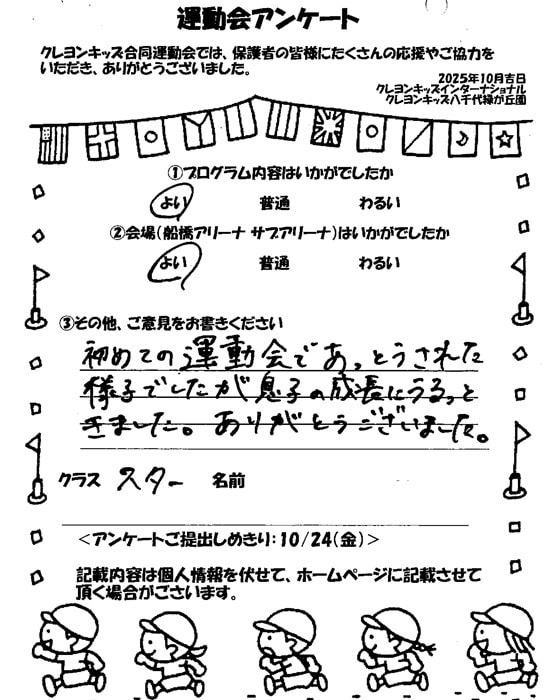 運動会アンケート
クレヨンキッズ合同運動会では、保護者の皆様にたくさんの応援やご協力を
いただき、ありがとうございました。
2025年10月吉日
クレヨンキッズインターナショナル
クレヨンキッズ八千代緑が丘園
①プログラム内容はいかがでしたか
よい 普通 わるい
②会場(船橋アリーナ サブアリーナ)はいかがでしたか
よい 普通 わるい
③その他、ご意見をお書きください
初めての運動会であっとうされた
様子でしたが息子の成長にうるっと
きました。ありがとうございました。
クラス スター 名前
<アンケートご提出しめきり:10/24(金)>
記載内容は個人情報を伏せて、ホームページに記載させて
頂く場合がございます。